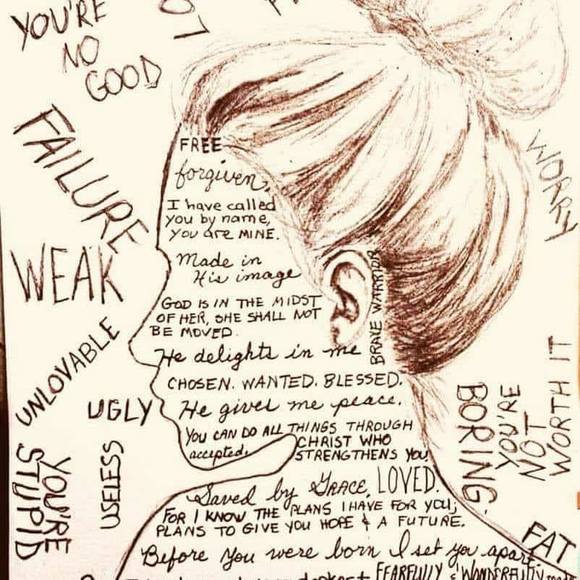 YOU'RE
NO
GOOD
FAILURE
WEAK
UNLOVABLE
UGLY
USELESS
YOU'RE
STUPID
WORRY
BORING.
YOU'RE
NOT
WORTH IT
FAT
FREE
forgiven,
I have called
you by name,
you are MINE.
Made in
His image
GOD IS IN THE MIDST
OF HER, SHE SHALL NOT
BE MOVED.
BRAVE WARRIOR
He delights in me
CHOSEN. WANTED. BLESSED.
He gives me peace.
YOU CAN DO ALL THINGS THROUGH
CHRIST WHO
accepted.
STRENGTHENS YOU
Saved by Grace, LOVED.
FOR I KNOW THE PLANS I HAVE FOR YOU,
PLANS TO GIVE YOU HOPE & A FUTURE.
Before you were born I set you apart
FEARFULLY & WONDERFULLY